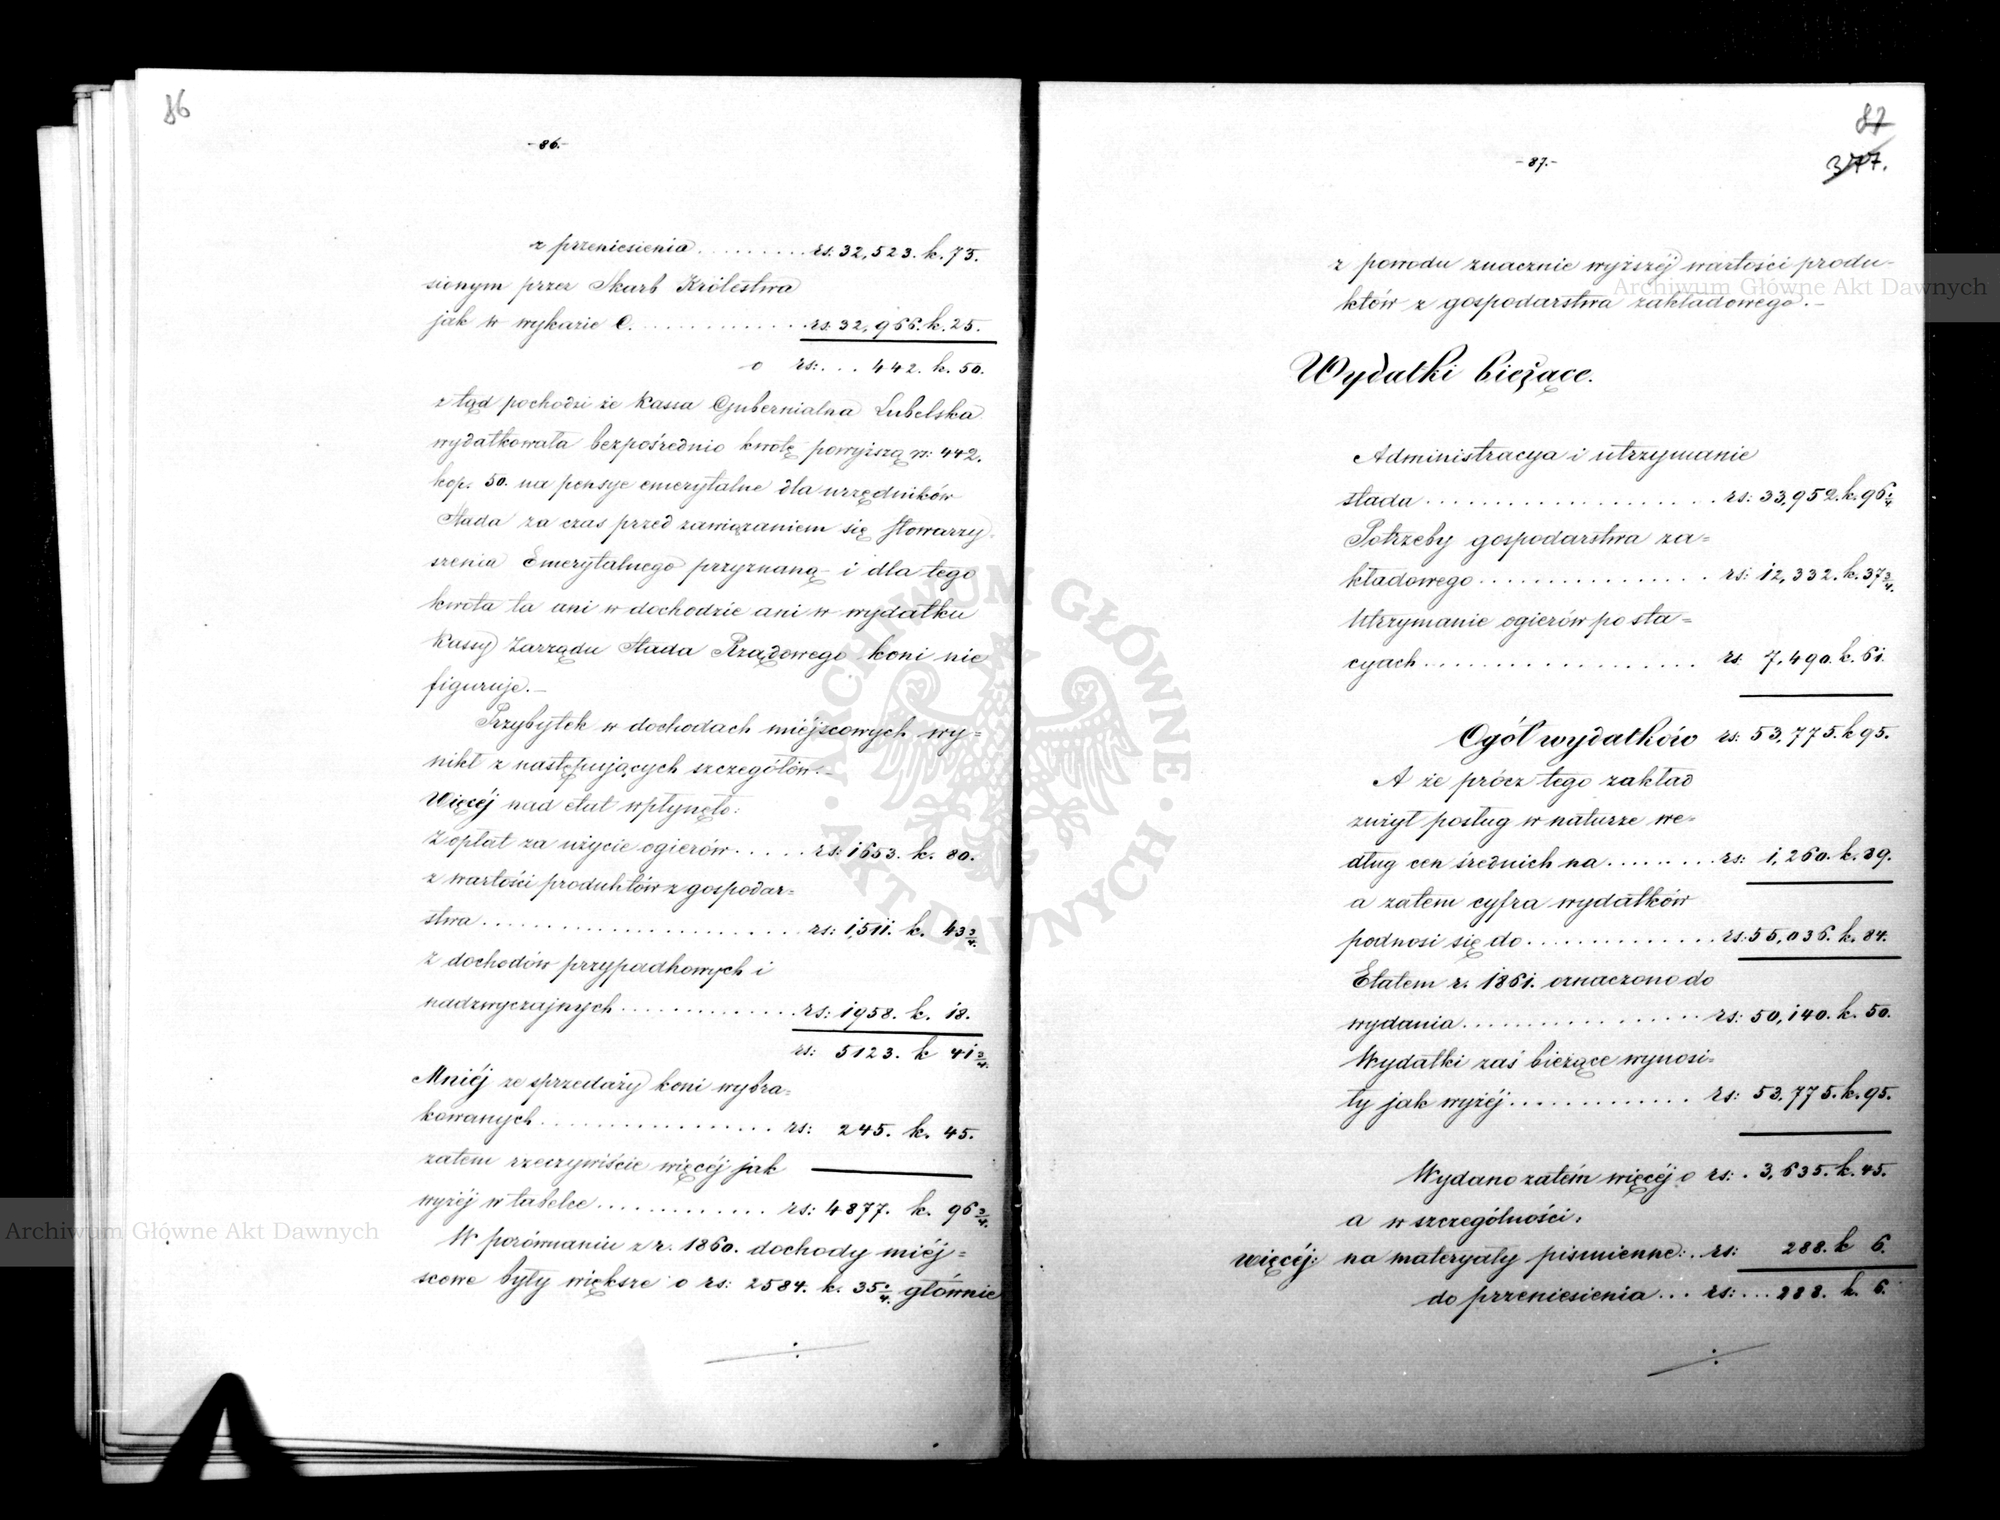 86
-86.-
z przeniesienia .......... rs: 32,523. k. 75.
sionym przez Skarb Królestwa
jak w wykazie C. ............. rs. 32,966. k. 25.
o rs: ... 442. k. 50.
ztąd pochodzi że Kassa Gubernialna Lubelska
wydatkowała bezpośrednio kwotę powyższą rs: 442.
kop. 50. na pensye emerytalne dla urzędników
Stada za czas przed zawiązaniem się Stowarzy-
szenia Emerytalnego przyznaną - i dla tego
kwota ta ani w dochodzie ani w wydatku
Kassy Zarządu Stada Rządowego koni nie
figuruje.-
Przybytek w dochodach miéjscowych wy=
nikł z następujących szczegółów.-
Więcéj nad etat wpłynęło:
Z opłat za użycie ogierów ..... rs: 1653. k. 80.
z wartości produktów z gospodar=
stwa ....................... rs: 1,511. k. 43 3/4.
z dochodów przypadkowych i
nadzwyczajnych ............. rs: 1958. k. 18.
rs: 5123. k 41 3/4.
Mniéj ze sprzedaży koni wybra=
kowanych ................. rs: 245. k. 45.
zatem rzeczywiście więcéj jak
wyżéj w tabelce ............. rs: 4877. k. 96 3/4.
W porównaniu z r. 1860. dochody miéj=
scowe były większe o rs: 2584. k. 35 3/4. głównie
87
377.
-87.-
z powodu znacznie wyższéj wartości produ-
któw z gospodarstwa zakładowego.-
Wydatki bieżące.
Administracya i utrzymanie
stada ..................... rs: 33,952. k. 96 1/4
Potrzeby gospodarstwa za=
kładowego ................. rs: 12,332. k. 37 3/4.
Utrzymanie ogierów po sta=
cyach .................... rs: 7,490. k. 61.
Ogół wydatków rs: 53,775. k 95.
A że prócz tego zakład
zużył posług w naturze we-
dług cen średnich na ........ rs: 1,260. k. 89.
a zatem cyfra wydatków
podnosi się do ............. rs: 55,036. k. 84.
Etatem r. 1861. oznaczono do
wydania .................. rs: 50,140. k. 50.
Wydatki zaś bieżące wynosi-
ły jak wyżéj ............. rs: 53,775. k. 95.
Wydano zatém więcéj o rs: . 3,635. k. 45.
a w szczególności:
więcéj: na materyały piśmienne: . rs: 288. k 6.
do przeniesienia ... rs: ... 288. k. 6.
Archiwum Główne Akt Dawnych
Archiwum Główne Akt Dawnych
· ARCHIWUM GŁÓWNE · AKT DAWNYCH